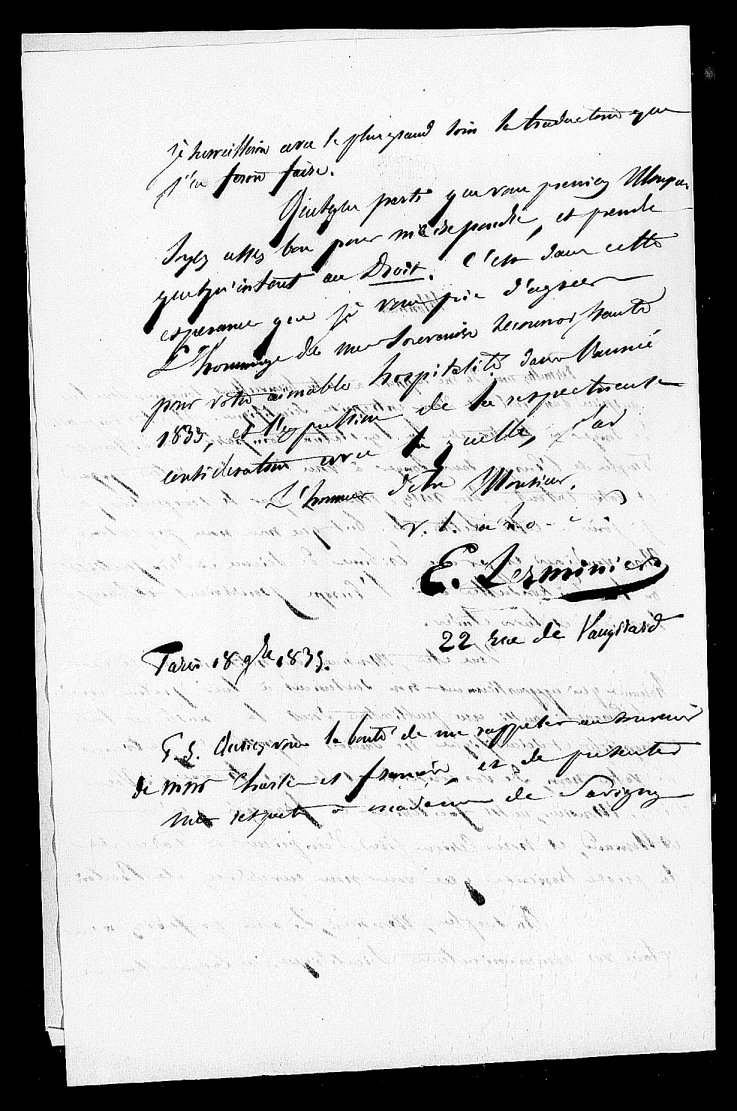 je surveillerai avec le plus grand soin la traduction que
j'en ferai faire.
Quelque parti que vous preniez, Monsieur
soyez assez bon pour me répondre, et prendre
quelqu'intérêt au Droit. C'est dans cette
espérance que je vous prie d'agréer
l'hommage de ma souvenir reconnaissante
pour votre aimable hospitalité dans l'année
1833, et l'expression de la respectueuse
considération avec laquelle, j'ai
L'honneur d'être Monsieur,
v. t.
E. Lerminier
22 rue de Vaugirard
Paris 18 9bre 1835.
P. S. Auriez vous la bonté de me rappeler au souvenir
de MMrs Charles et François, et de présenter
mes respects à madame de Savigny